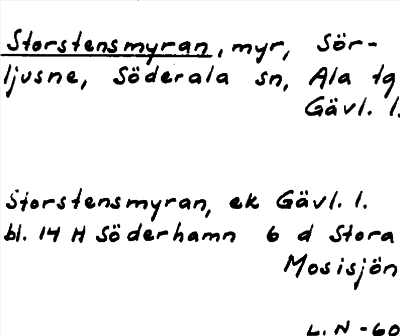 Storstensmyran, myr, Sör-
ljusne, Söderala sn, Ala tg
Gävl. l.
Storstensmyran, ek Gävl. l.
bl. 14 H Söderhamn 6 d Stora
Mosisjön
L. N -60